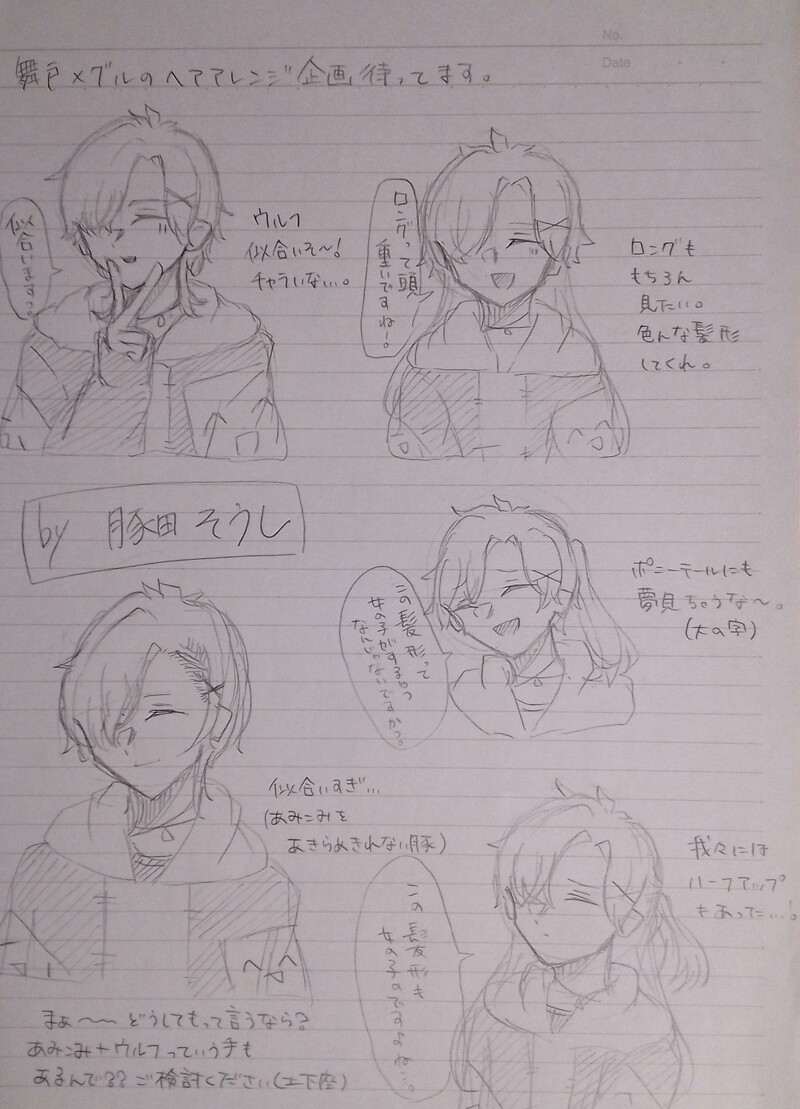 No.
Date
舞戸メグルのヘアアレンジ企画待ってます。
似合います?
ウルフ
似合いそ〜!
チャラいな…。
ロングって頭
重いですね〜。
ロングも
もちろん
見たい。
色んな髪形
してくれ。
by 豚田そうし
この髪形って
女の子がするやつ
なんじゃないですかっ。
ポニーテールにも
夢見ちゃうな〜。
(大の字)
似合いすぎ…
(あみこみを
あきらめきれない豚)
この髪形も
女の子のですよね…。
我々には
ハーフアップ
もあった…!
まぁ〜〜どうしてもって言うなら?
あみこみ+ウルフっていう手も
あるんで??ご検討ください(土下座)